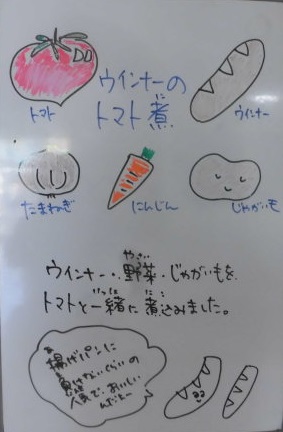 ウインナーの
トマト煮
に
トマト
ウインナー
たまねぎ
にんじん
じゃがいも
やさい
ウインナー・野菜・じゃがいもを、
いっしょ に こ
トマトと一緒に煮込みました。
揚げパンに
負けないくらいの
人気で、おいしい
んだよー